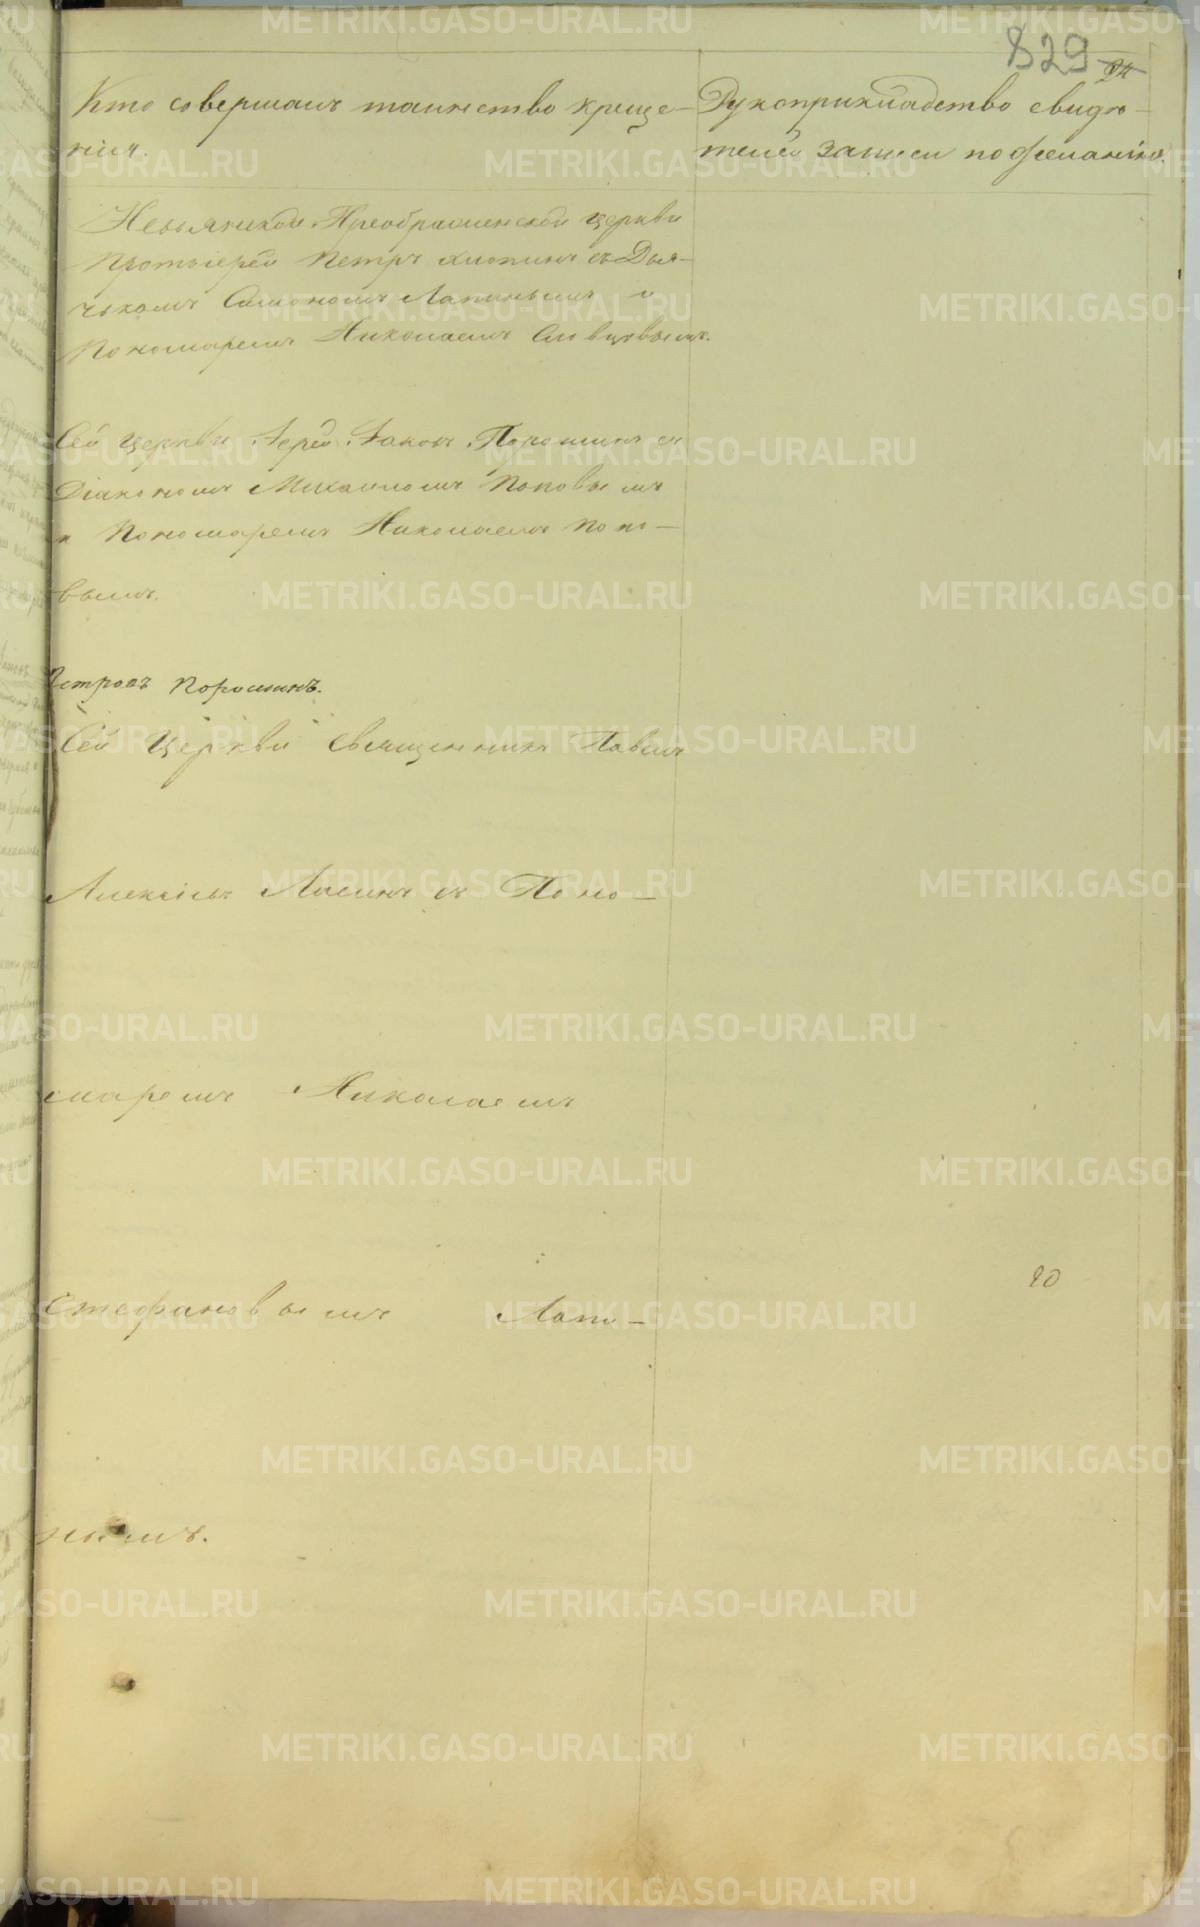 829
94
Кто совершалъ таинство креще-
нія.
Рукоприкладство свидѣ-
телей записи по желанію.
Невьянской Преображенской церкви
Протоіерей Петръ съ Дья-
чькомъ Симономъ Лапинымъ и
Пономаремъ Николаемъ Словцовымъ.
Сей Церкви Іерей Іаковъ Порошинъ съ
Діакономъ Михаиломъ Поповымъ
и Пономаремъ Николаемъ Попо-
вымъ.
Петровъ Порошинъ.
Сей Церкви Священникъ Павелъ
Алексіевъ съ Поно-
маремъ Николаемъ
90
Стефановымъ Лапи-
нымъ.
METRIKI.GASO-URAL.RU